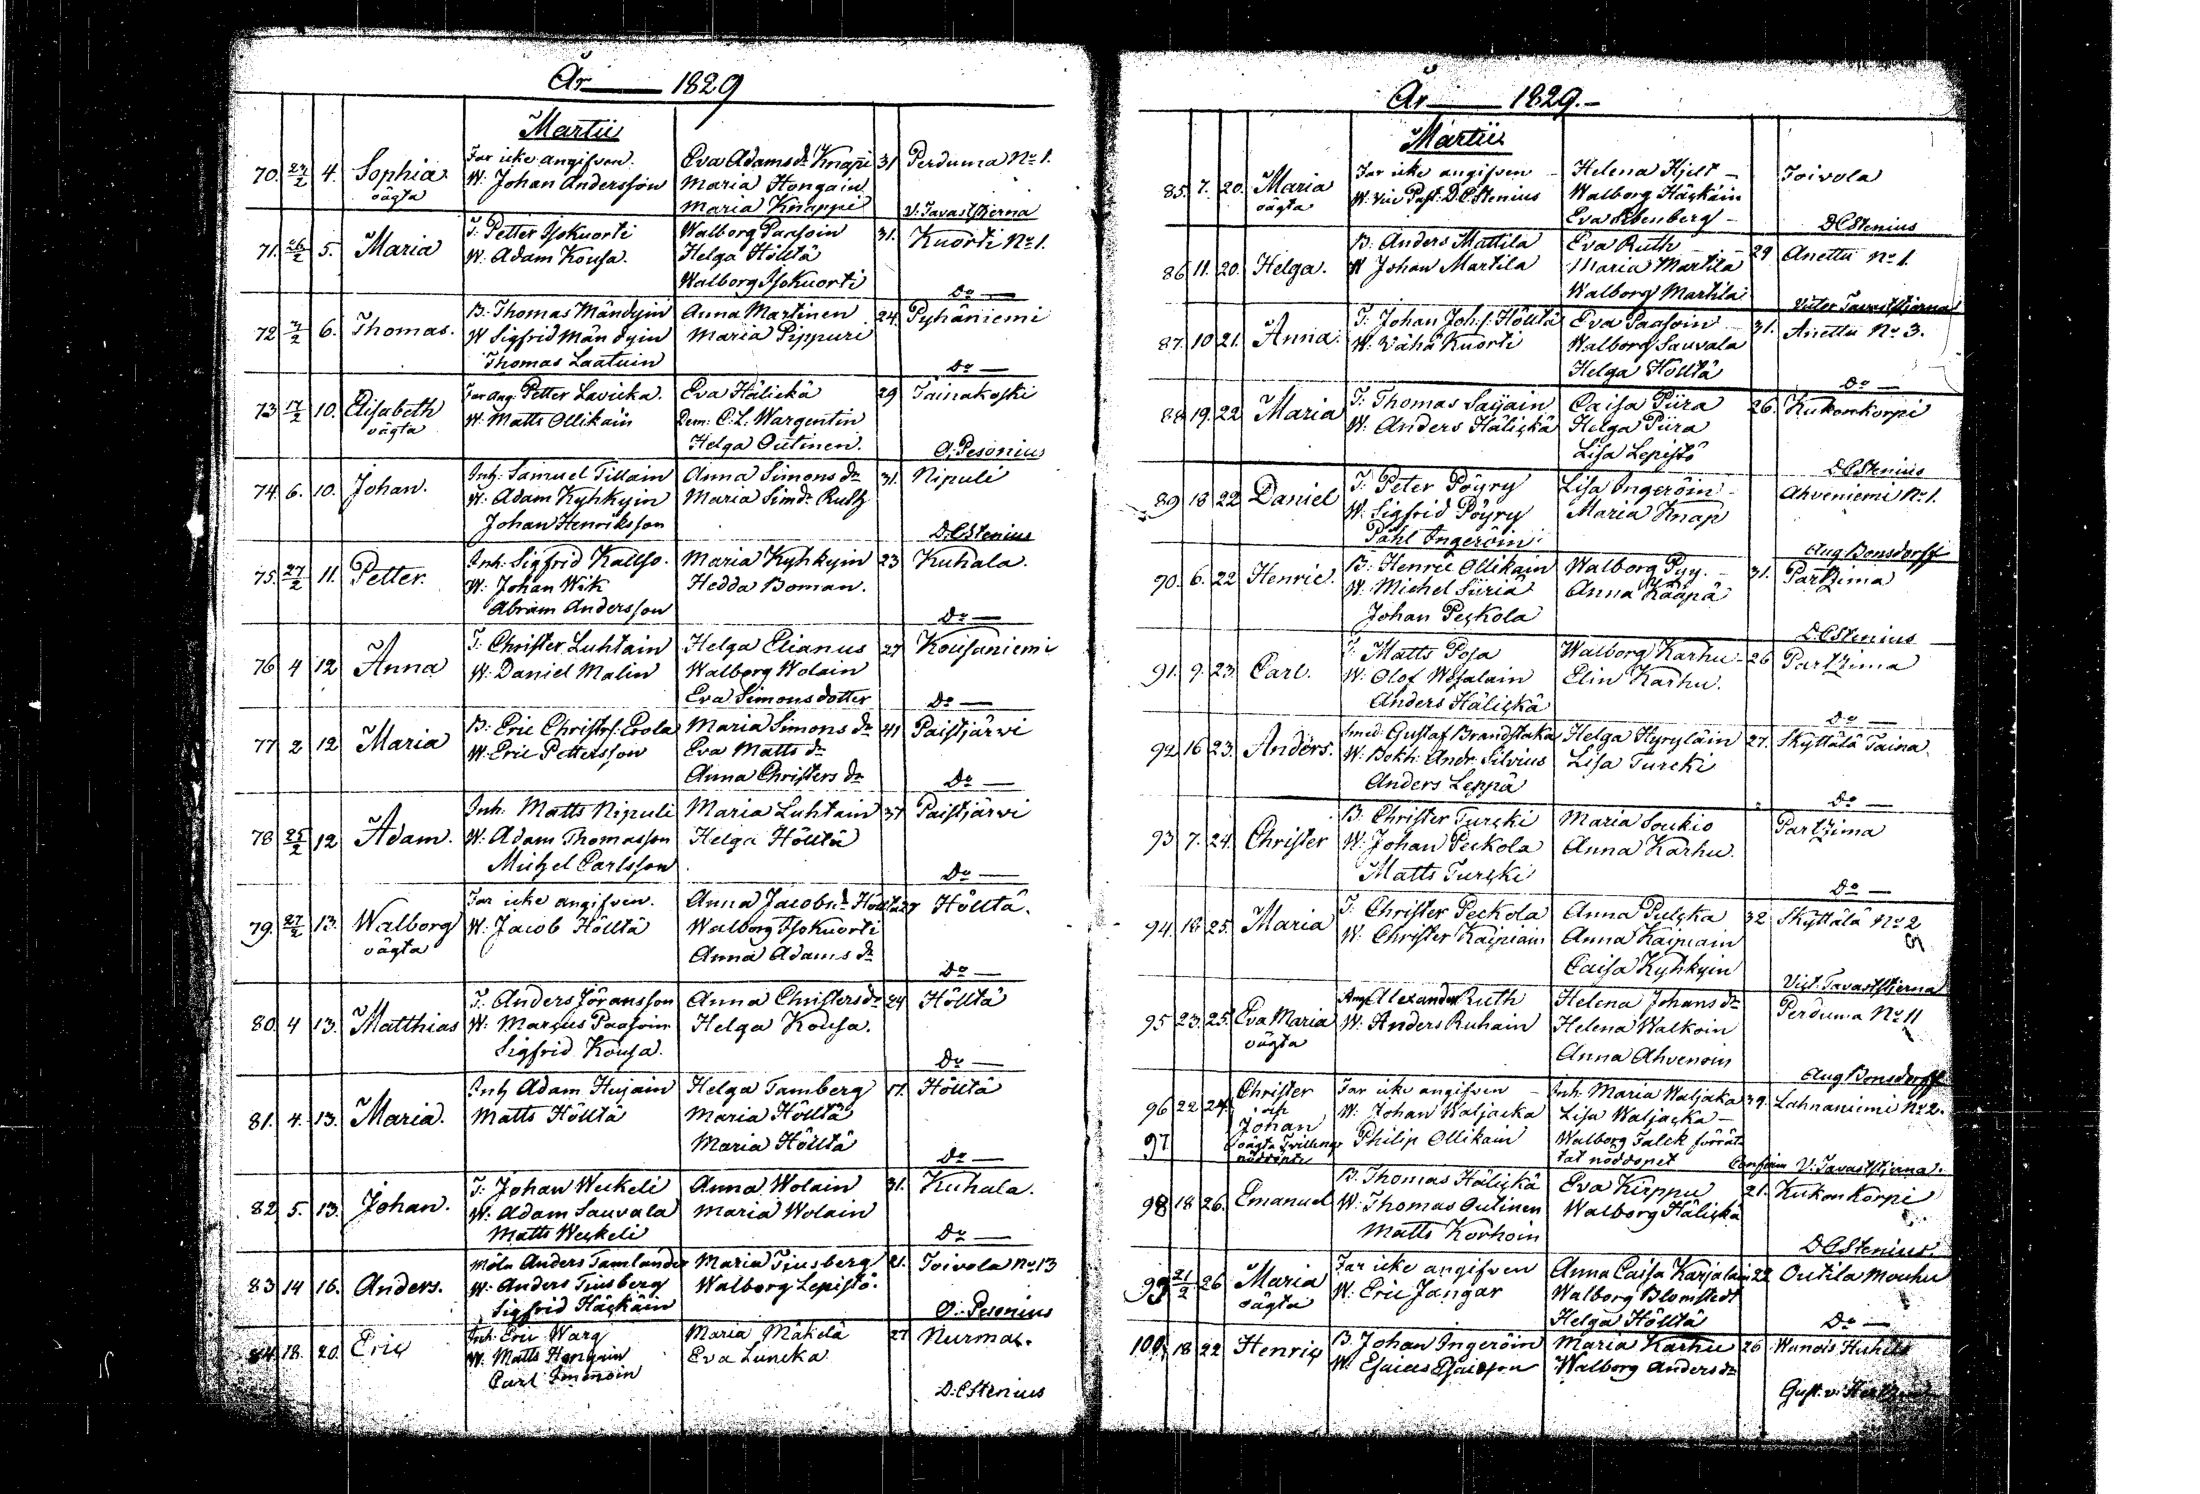 År 1829
Martii
70. 24/2 4. Sophia Far icke angifven. Eva Adamsdr Knapi 31 Perduma No 1.
oägta W: Johan Andersson Maria Hongain
Maria Knappi V. Tavaststjerna
71. 26/2 5. Maria T: Petter Isokuorti Walborg Paasoin 31. Kuorti No 1.
W: Adam Kousa. Helga Hölltä
Walborg Isokuorti Do —
72 2/2 6. Thomas. B: Thomas Mändyin Anna Martinen 24. Pyhäniemi
W Sigfrid Mändyin Maria Pippuri
Thomas Laatuin Do —
73 17/2 10. Elisabeth Far ang: Petter Lavicka. Eva Hälickä 29 Tainakoski
oägta W: Matts Ollikäin Dem: C: L: Wargentin
Helga Outinen. O: Pesonius
74. 6. 10. Johan. Inh: Samuel Tillain Anna Simonsdr 31. Nipuli
W: Adam Kyhkyin Maria Simdr Ruth
Johan Henriksson D: C Stenius
75. 27/2 11. Petter. Inh: Sigfrid Kallio. Maria Kyhkyin 23 Kuhala.
W: Johan Wik Hedda Boman.
Abram Andersson Do —
76 4 12 Anna T: Christer Luhtain Helga Elianus 27 Kousaniemi
W: Daniel Malin Walborg Wolain
Eva Simonsdotter Do —
77 2 12 Maria B: Eric Christrs: Erola Maria Simonsdr 41 Paistjärvi
W: Eric Pettersson Eva Mattsdr
Anna Christersdr Do —
78 25/2 12 Adam. Inh: Matts Nipuli Maria Luhtain 37 Paistjärvi
W: Adam Thomasson Helga Hölltä
Michel Carlsson Do —
79. 27/2 13. Walborg Far icke angifven. Anna Jacobsdr Hölltä 27 Hölltä.
oägta W: Jacob Hölltä Walborg Isokuorti
Anna Adamsdr Do —
80. 4 13. Matthias T: Anders Jöransson Anna Christersdr 24 Hölltä
W: Marcus Paasoin Helga Kousa.
Sigfrid Kousa. Do —
81. 4. 13. Maria. Inh Adam Hujain Helga Tamberg 17. Hölltä
Matts Hölltä Maria Hölltä
Maria Hölltä Do —
82 5. 13. Johan. T: Johan Weckeli Anna Wolain 31. Kuhala.
W: Adam Sauvala Maria Wolain
Matts Weckeli Do —
83 14 16. Anders. Möln Anders Tamlander Maria Tiusberg 21. Toivola No 13
W: Anders Tiusberg Walborg Lepistö.
Sigfrid Häckäin O: Pesonius
84. 18. 20. Eric Inh: Eric Warg Maria Mäkelä 27 Nurmaa.
W: Matts Hongain Eva Luncka
Carl Immoin D: C Stenius
År 1829.
Martii
85. 7. 20. Maria Far icke angifven Helena Hjelt Toivola
oägta W: Vice Past: D. C Stenius Walborg Häckäin
Eva Stenberg D C Stenius
86 11. 20. Helga. B: Anders Mattila Eva Ruth 29 Anettu No 1.
W Johan Martila Maria Martila
Walborg Martila Victor Tavaststjerna
87. 10 21. Anna. T: Johan Johs: Hölltä Eva Paasoin 31. Anettu No 3.
W: Vähä Kuorti Walborg Sauvala
Helga Hölltä Do —
88 19. 22 Maria T: Thomas Saijain Caisa Piira 26. Kukonkorpi
W: Anders Häličkä Helga Piira
Lisa Lepistö D. C Stenius
89 18 22 Daniel T: Peter Pöyry Lisa Ingeröin Ahveniemi No 1.
W: Sigfrid Pöyry Maria Knap
Påhl Ingeröin Aug Bonsdorff
90. 6. 22 Henric. B: Henric Ollikain Walborg Pyy. 31. Partzima
W: Michel Siiriä Anna Kääpä
Johan Peckola D. C Stenius
91. 9. 23. Carl. T: Matts Posa Walborg Karhu 26 Partzima
W: Olof Wesalain Elin Karhu.
Anders Hälickä Do —
92 16 23. Anders. Smed: Gustaf Brandstaka Helga Hyryläin 27. Skyttälä Taina
W: Bokh: Andr: Silvius Lisa Turcki
Anders Leppä Do —
93 7. 24. Christer B: Christer Turcki Maria Soukio Partzima
W: Johan Peckola Anna Karhu.
Matts Turcki Do —
94. 18. 25. Maria T: Christer Peckola Anna Pulcka 32 Skyttälä No 2
W: Christer Kaipiain Anna Kaipiain
Caisa Kyhkyin Vict. Tavaststjerna
95 23. 25. Eva Maria Ang: Alexander Ruth Helena Johansdr Perduma No 11
oägta W: Anders Ruhain Helena Walkoin
Anna Ahvenoin Aug Bonsdorff
96 22 24. Christer Far icke angifven Inh: Maria Waljaka 39. Lahnaniemi No 2.
och W: Johan Waljacka Lisa Waljacka
97 Johan Philip Ollikain Walborg Falck förrät
oägta Tvillingar nöddöpte tat nöddopet Confirm V: Tavaststjerna.
98 18 26. Emanuel B: Thomas Hälickä Eva Kirppu 21. Kukonkorpi
W: Thomas Outinen Walborg Hälickä
Matts Korhoin D C Stenius
99 21/2 26 Maria Far icke angifven Anna Caisa Karjalain 22 Outila Mouhu
oägta W: Eric Jangar Walborg Blomstedt
Helga Hölltä Do —
100. 18 22 Henric B. Johan Ingeröin Maria Karhu 26
W: Esaias Esaiesson Walborg Andersdr